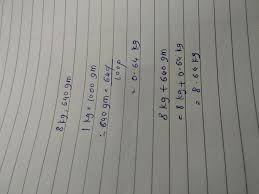 8 kg, 640 gm
1 kg = 1000 gm
∴ 640 gm = 640/1000
= 0.64 kg
8 kg + 640 gm
= 8 kg + 0.64 kg
= 8.64 kg